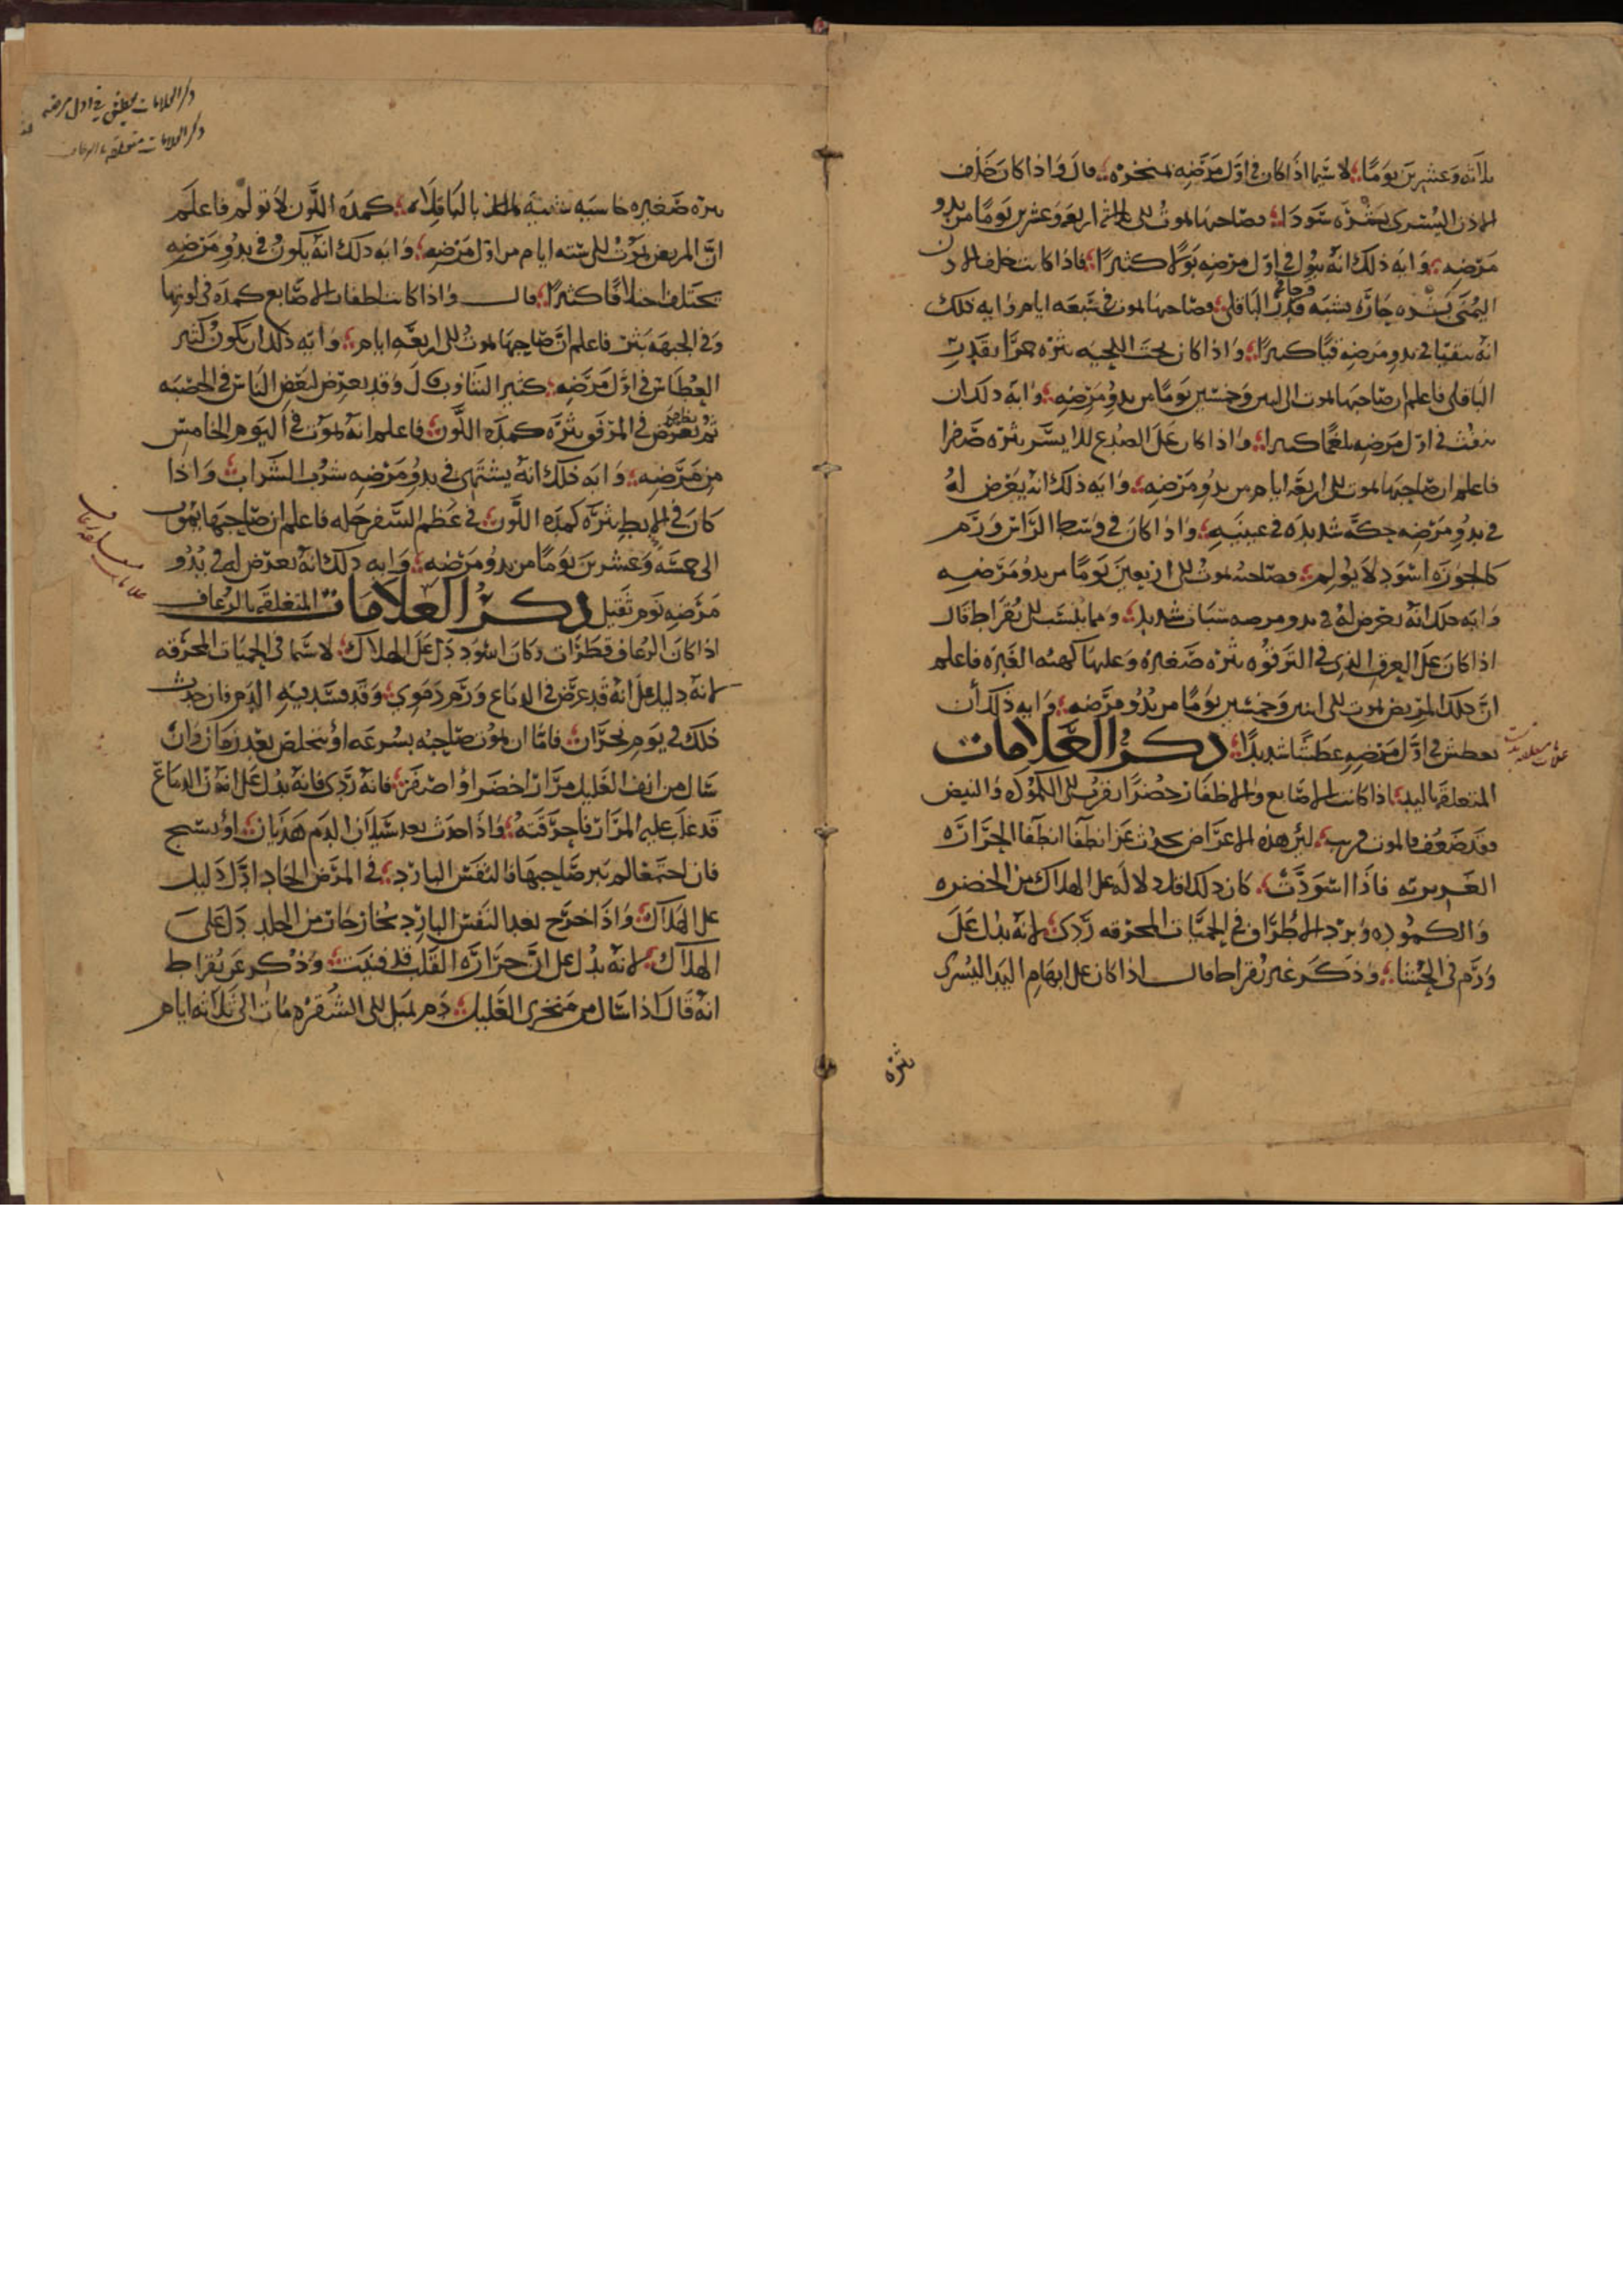 ثلاثه وعشرين يوما لا سيما اذا كان في اول مرضه قال واذا كان خلف
الاذن اليسرى بثره سودا فصاحبها يموت الى اربعه وعشرين يوما من بدو
مرضه وايه ذلك انه يبول في اول مرضه بولا كثيرا فاذا كانت خلف الاذن
اليمنى بثره حاره يشبه قدر الباقلى فصاحبها يموت في سبعه ايام وايه ذلك
انه يتقيا في بدو مرضه قيا كبيرا واذا كان تحت اللحيه بثره حمرا بقدر
الباقلى فاعلم ان صاحبها يموت الى اثنين وخمسين يوما من بدو مرضه وايه ذلك ان
ينفث في اول مرضه بلغما كبيرا واذا كان على الصدغ الايسر بثره صفرا
فاعلم ان صاحبها يموت الى اربعه ايام من بدو مرضه وايه ذلك انه يعرض له
في بدو مرضه حكه شديده في عينيه واذا كان في وسط الراس ورم
كالجوزه اسود لا يولم فصاحبه يموت الى اربعين يوما من بدو مرضه
وايه ذلك انه يعرض له في بدو مرضه سبات شديد ومما ينسب الى بقراط قال
اذا كان على العرق الذي في الترقوه بثره صغيره وعليها كهيئه الغبره فاعلم
ان ذلك المريض يموت الى اثنين وخمسين يوما من بدو مرضه وايه ذلك ان
يعطش في اول مرضه عطشا شديدا ذكر العلامات
المتعلقه باليد اذا كانت الاصابع والاظفار خضرا يقرب الى الكموده والنبض
فقد ضعف فالموت قريب لان هذه الاعراض يحدث عن انطفا الحراره
الغريزيه فاذا اسودت كان ذلك اقل دلاله على الهلاك من الخضره
والكموده وبرد الاطراف في الحميات المحرقه ردى لانه يدل على
ورم في الحشا وذكر غير بقراط قال اذا كان على ابهام اليد اليسرى
بثره
علامات متعلقه بدست
ذكر العلامات في اول مرضه
ذكر العلامات متعلقه بالرعاف
بثره صغيره خاسيه شبيه بالباقلا كمده اللون لا تولم فاعلم
ان المريض يموت الى سته ايام من اول مرضه وايه ذلك انه يكون في بدو مرضه
يختلف اختلافا كثيرا قال واذا كانت اظفار الاصابع كمده في لونها
وفي الجبهه بثر فاعلم ان صاحبها يموت الى اربعه ايام وايه ذلك ان يكون كثير
العطاس في اول مرضه كثير التثاوب قال وقد يعرض لبعض الناس في الحصبه
ثم يعرض في المرفق بثره كمده اللون فاعلم انه يموت في اليوم الخامس
من مرضه وايه ذلك انه يشتهى في بدو مرضه شرب الشراب واذا
كان في الابط بثره كمده اللون في عظم السفرجله فاعلم ان صاحبها يموت
الى خمسه وعشرين يوما من بدو مرضه وايه ذلك انه يعرض له في بدو
مرضه نوم ثقيل ذكر العلامات المتعلقه بالرعاف
اذا كان الرعاف قطرات وكان اسود دل على الهلاك لا سيما في الحميات المحرقه
لانه دليل على انه قد عرض في الدماغ ورم دموي وقد فسد فيه الدم فان حدث
ذلك في يوم بحران فاما ان يموت صاحبه بسرعه او يتخلص بعد زمان وان
سال من انف العليل مرار اخضر او اصفر فانه ردى فانه يدل على ان الدماغ
قد غلب عليه المرار فاحرقته واذا حدث بعد سيلان الدم هذيان او تشنج
فان اجتمعا لم يبر صاحبها فالنفس البارد في المرض الحاد ادل دليل
على الهلاك واذا خرج بعد النفس البارد بخار حار من الجلد دل على
الهلاك لانه يدل على ان حراره القلب قد فنيت وذكر عن بقراط
انه قال اذا سال من منخرى العليل دم يميل الى الشقره مات الى ثلاثه ايام